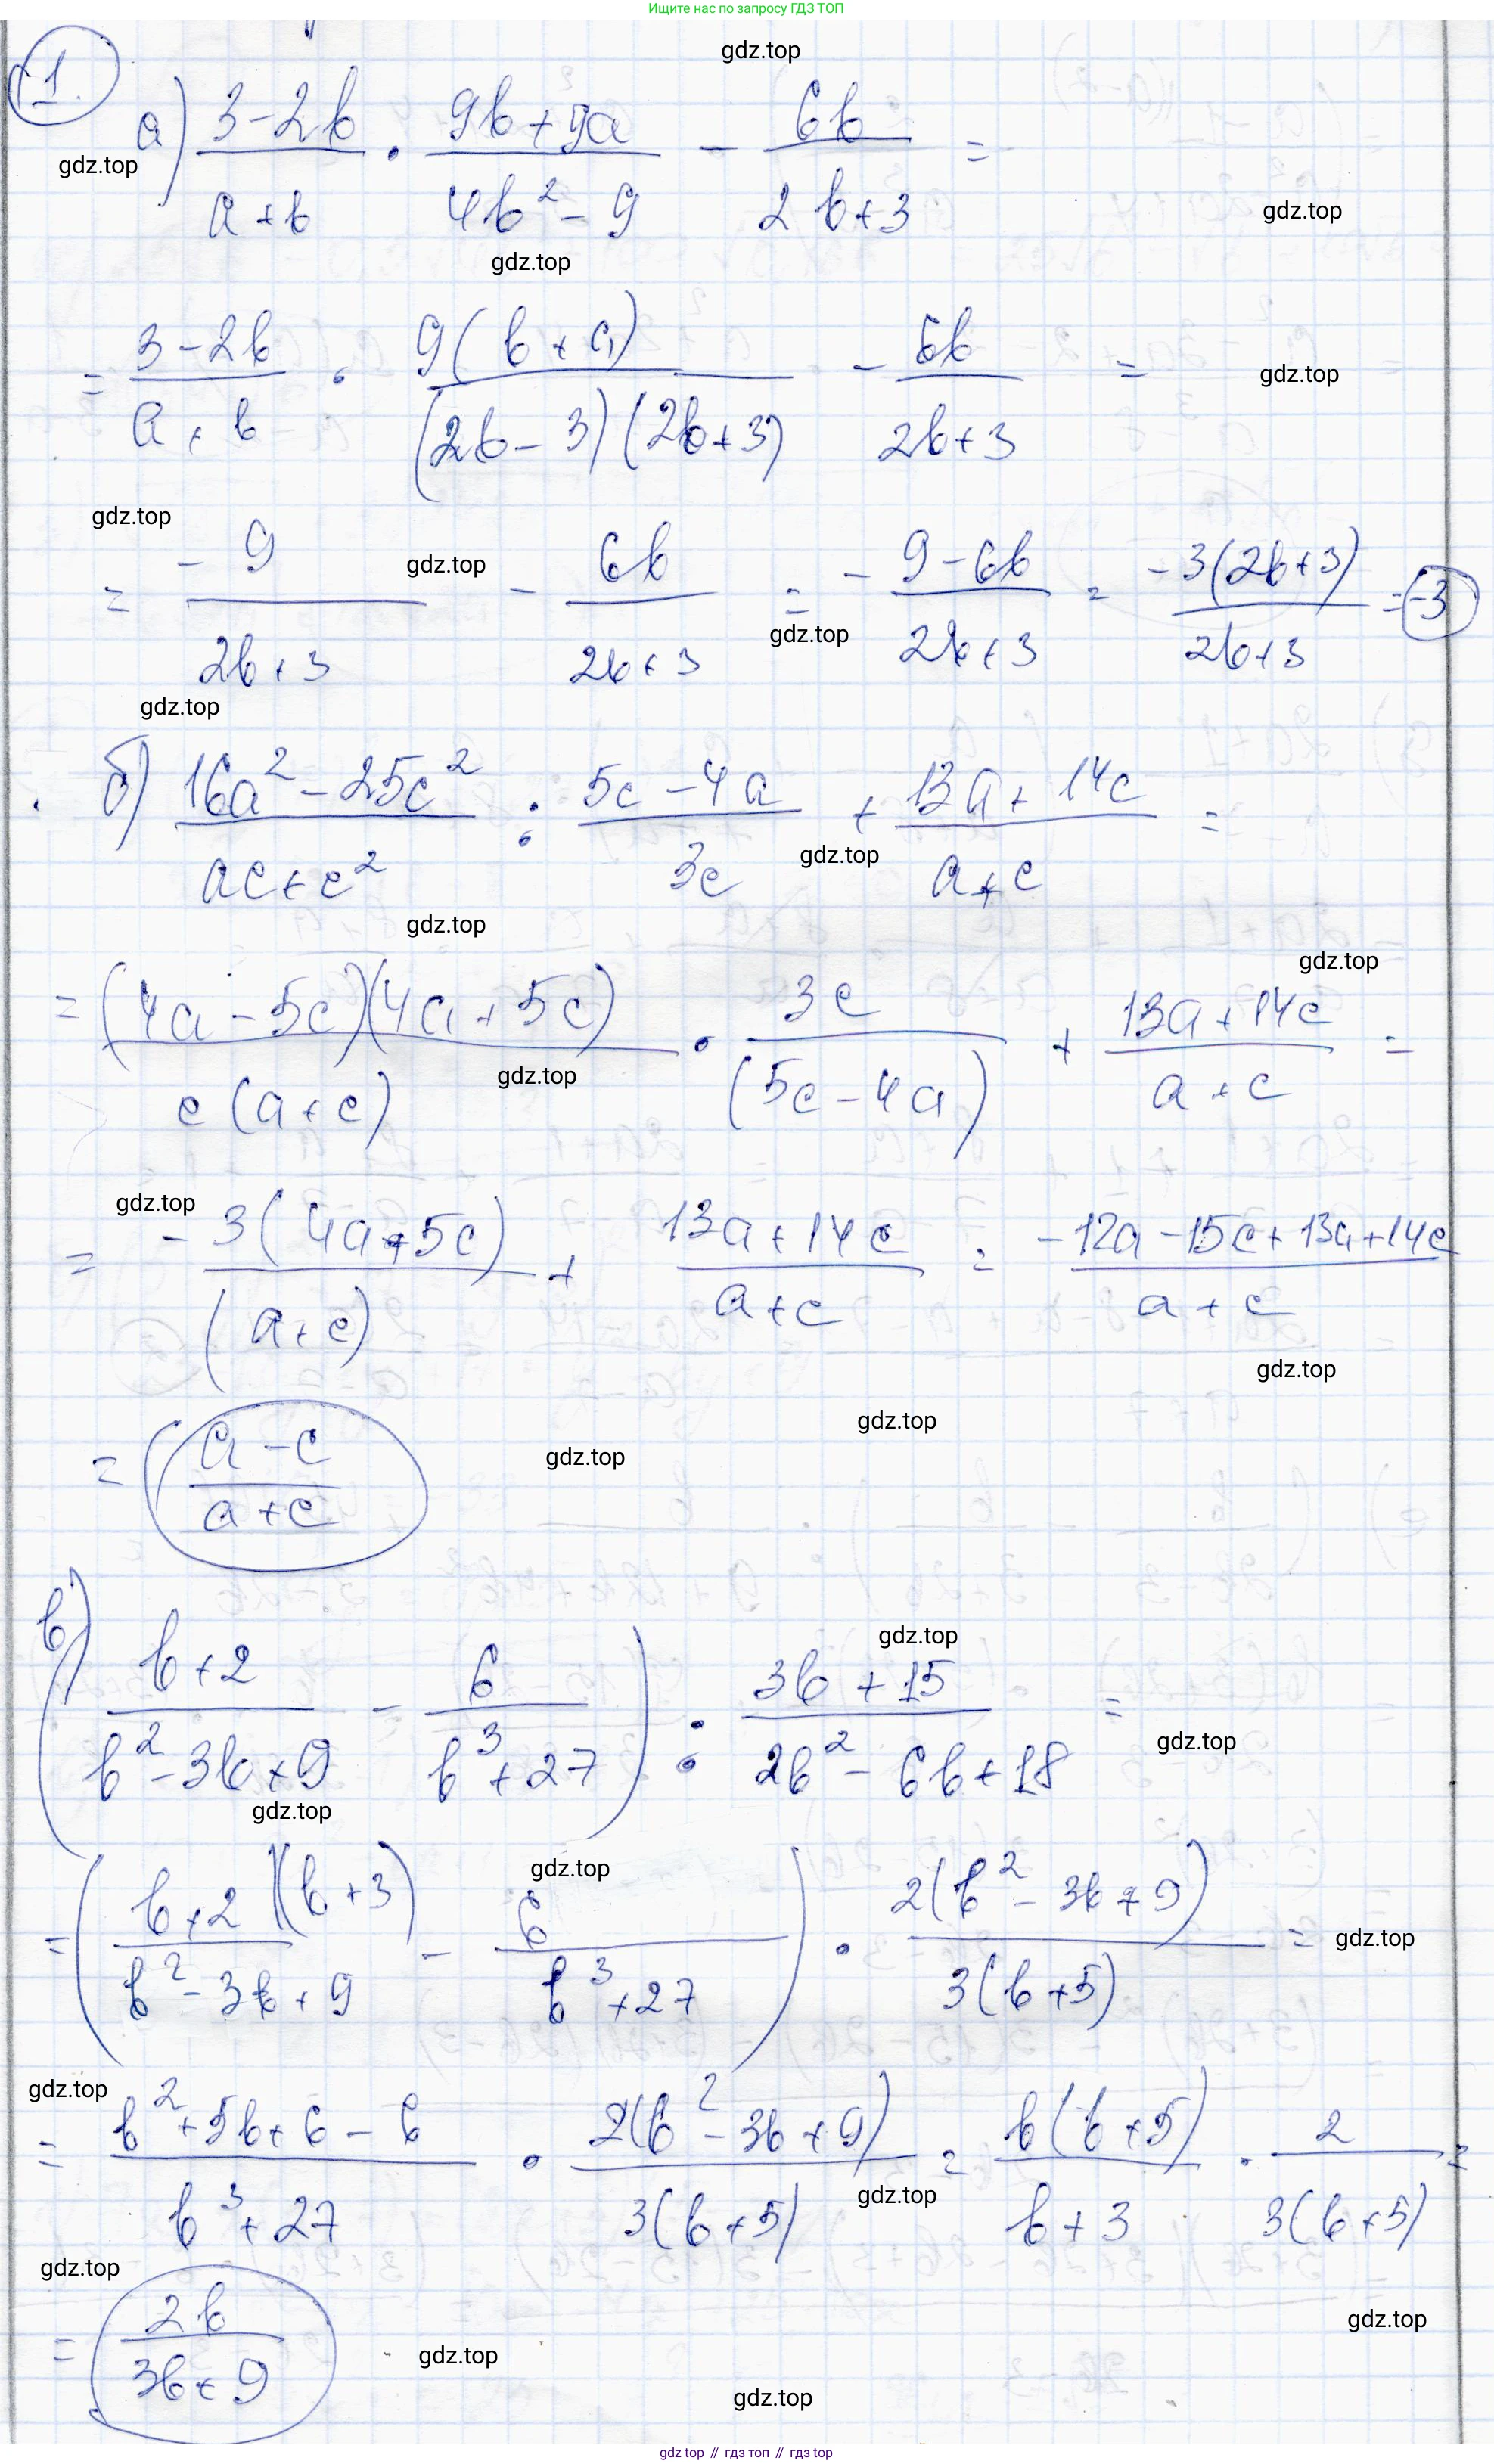 Ищите нас по запросу ГДЗ ТОП
1.
gdz.top
а) (3-2b)/(a+b) · (9b+9a)/(4b²-9) - 6b/(2b+3) =
gdz.top
gdz.top
gdz.top
= (3-2b)/(a+b) · 9(b+a)/((2b-3)(2b+3)) - 6b/(2b+3) =
gdz.top
gdz.top
gdz.top
= -9/(2b+3) - 6b/(2b+3) = (-9-6b)/(2b+3) = -3(2b+3)/(2b+3) = -3
gdz.top
gdz.top
б) (16a²-25c²)/(ac+c²) : (5c-4a)/3c + (13a+14c)/(a+c) =
gdz.top
gdz.top
gdz.top
= (4a-5c)(4a+5c)/(c(a+c)) · 3c/(5c-4a) + (13a+14c)/(a+c) =
gdz.top
gdz.top
= -3(4a+5c)/(a+c) + (13a+14c)/(a+c) = (-12a-15c+13a+14c)/(a+c)
gdz.top
gdz.top
= (a-c)/(a+c)
gdz.top
gdz.top
в) ((b+2)/(b²-3b+9) - 6/(b³+27)) : (3b+15)/(2b²-6b+18) =
gdz.top
gdz.top
gdz.top
= (b+2)(b+3)/(b²-3b+9) - 6/(b³+27)) · 2(b²-3b+9)/(3(b+5)) =
gdz.top
gdz.top
= (b²+5b+6-6)/(b³+27) · 2(b²-3b+9)/(3(b+5)) = b(b+5)/(b+3) · 2/(3(b+5)) =
gdz.top
gdz.top
= 2b/(3b+9)
gdz.top
gdz.top
gdz.top
gdz top // гдз топ // гдз top